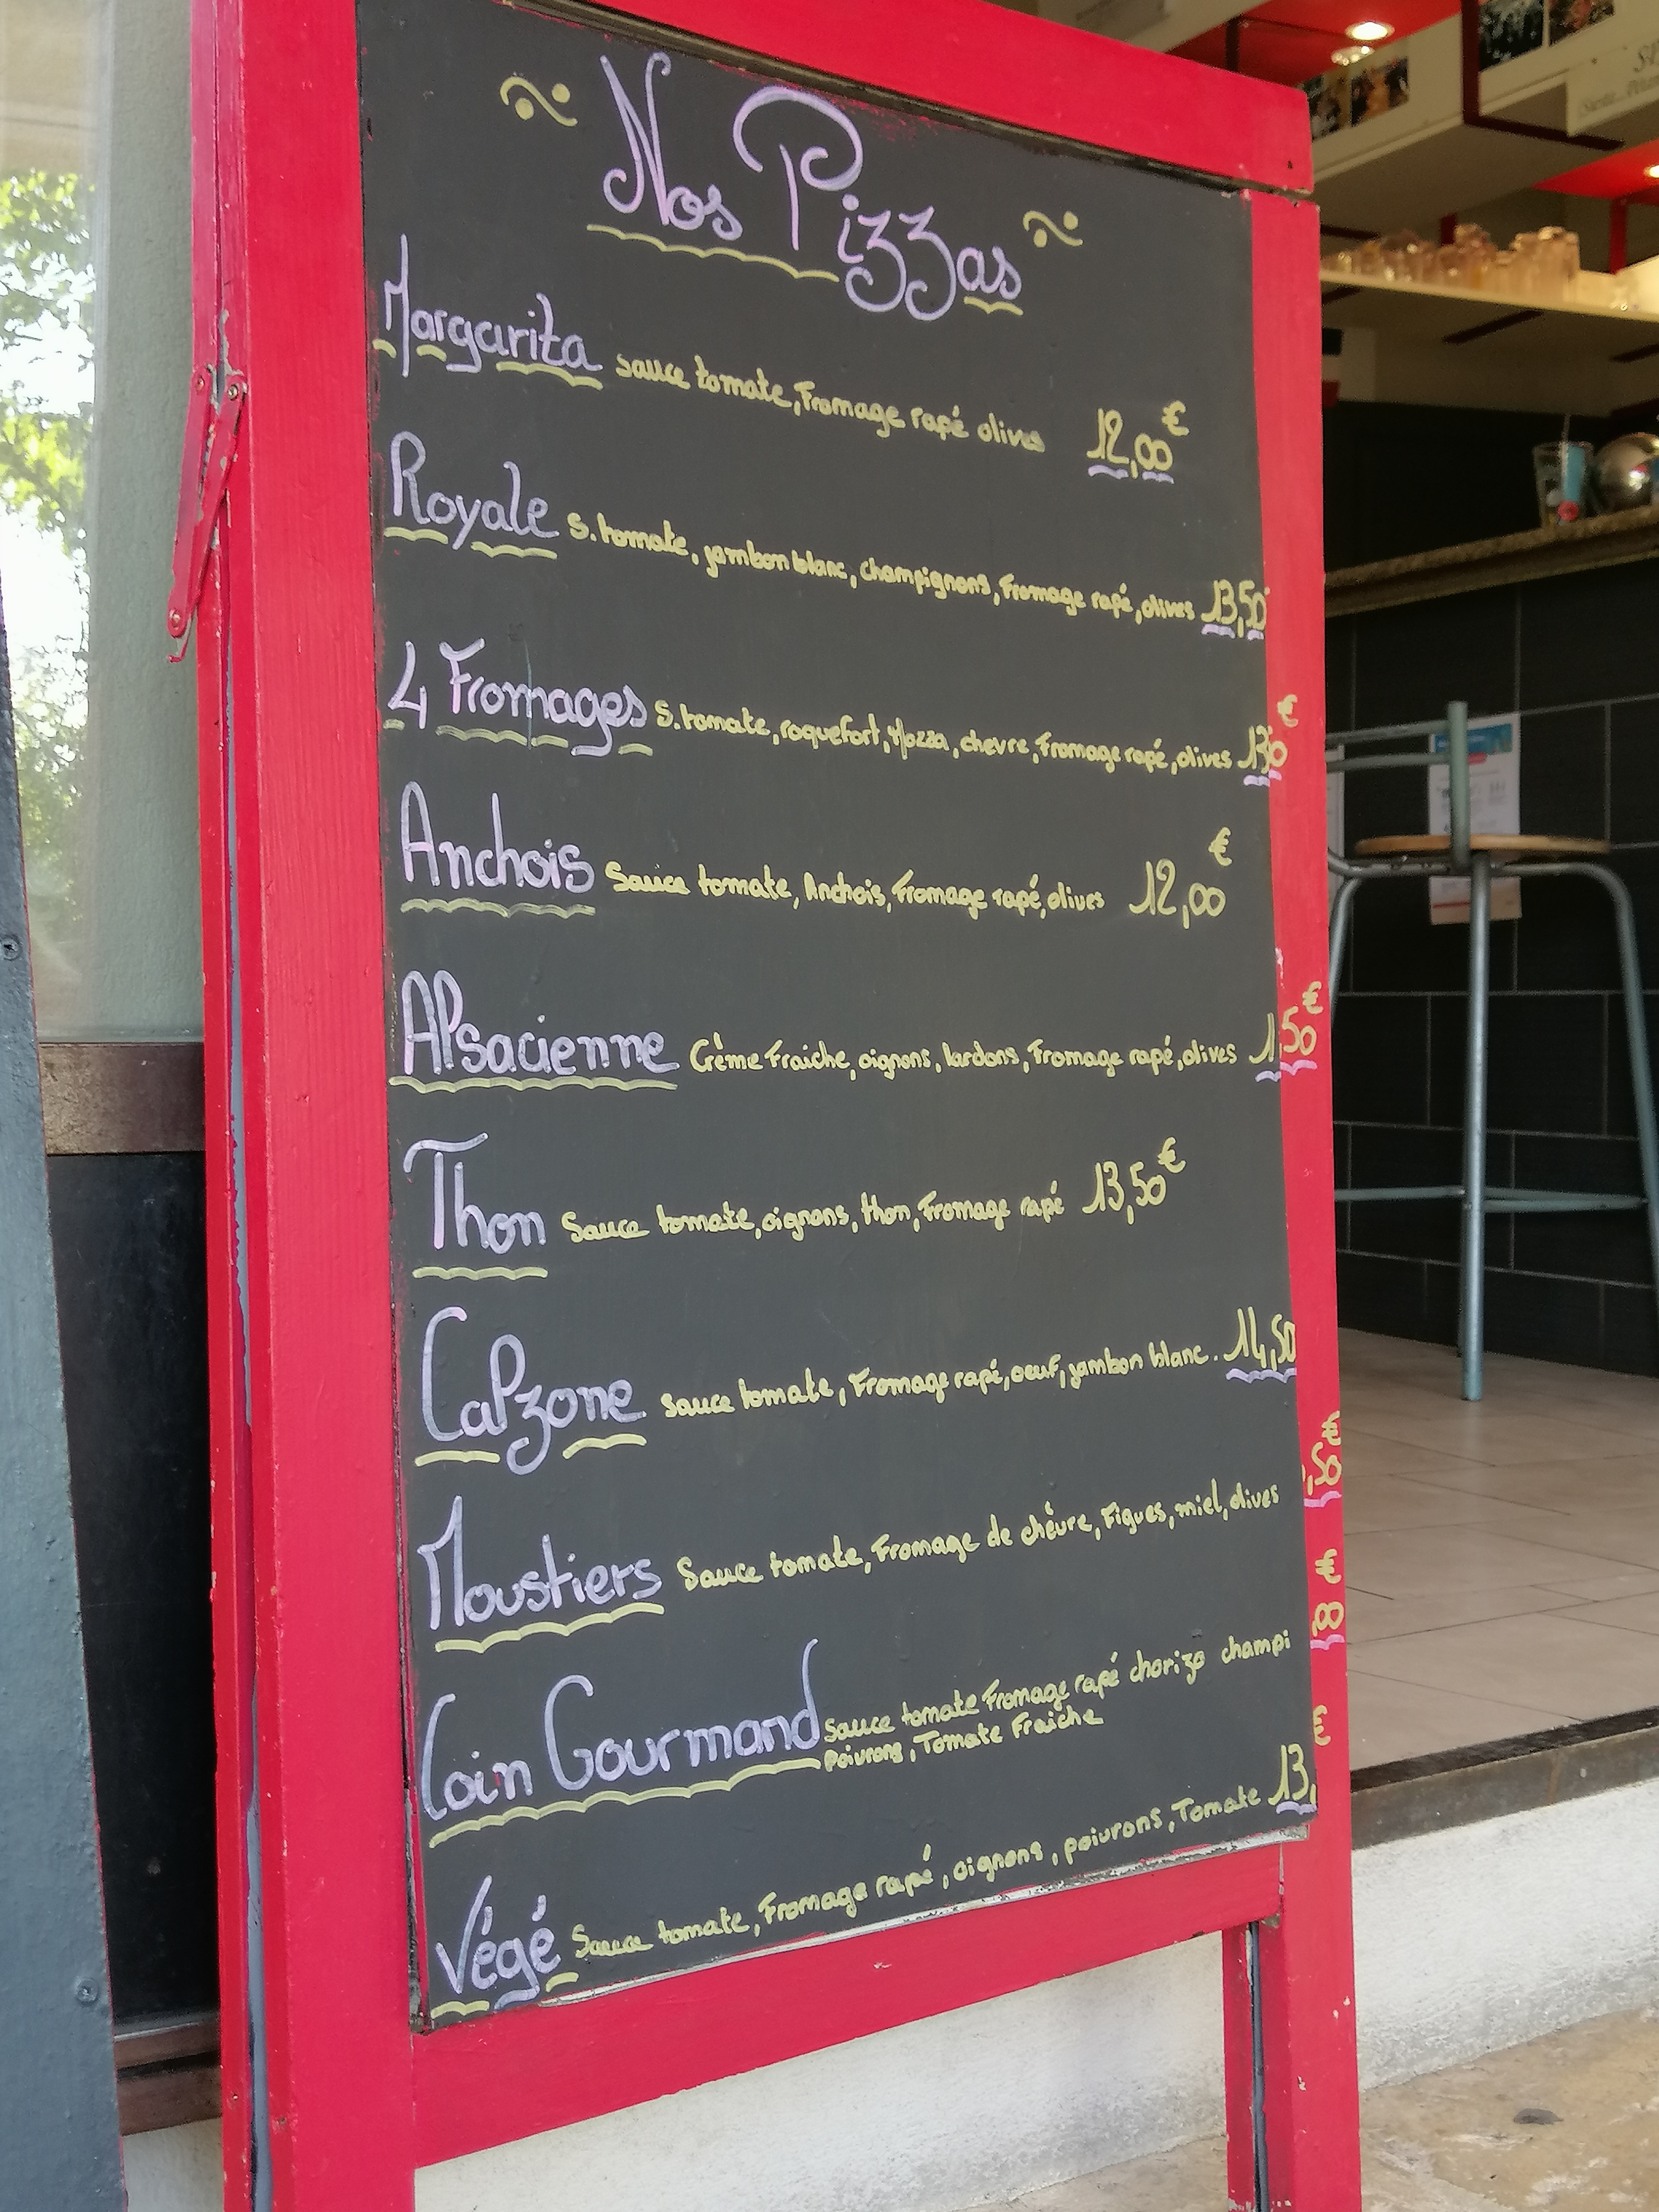 Nos Pizzas
Margarita sauce tomate, Fromage rapé olives 12,00€
Royale S. tomate, jambon blanc, champignons, Fromage rapé, olives 13,50
4 Fromages S. tomate, roquefort, Mozza, chevre, Fromage rapé, olives 13 €
Anchois Sauce tomate, Anchois, Fromage rapé, olives 12,00€
Alsacienne Crème Fraiche, oignons, lardons, Fromage rapé, olives 1 50€
Thon Sauce tomate, oignons, thon, Fromage rapé 13,50€
Calzone Sauce tomate, Fromage rapé, oeuf, jambon blanc. 14,50
Moustiers Sauce tomate, Fromage de chèvre, Figues, miel, olives ,50€
Coin Gourmand Sauce tomate Fromage rapé chorizo champi €
Poivrons, Tomate Fraiche
Végé Sauce tomate, Fromage rapé, oignons, poivrons, Tomate 13, €